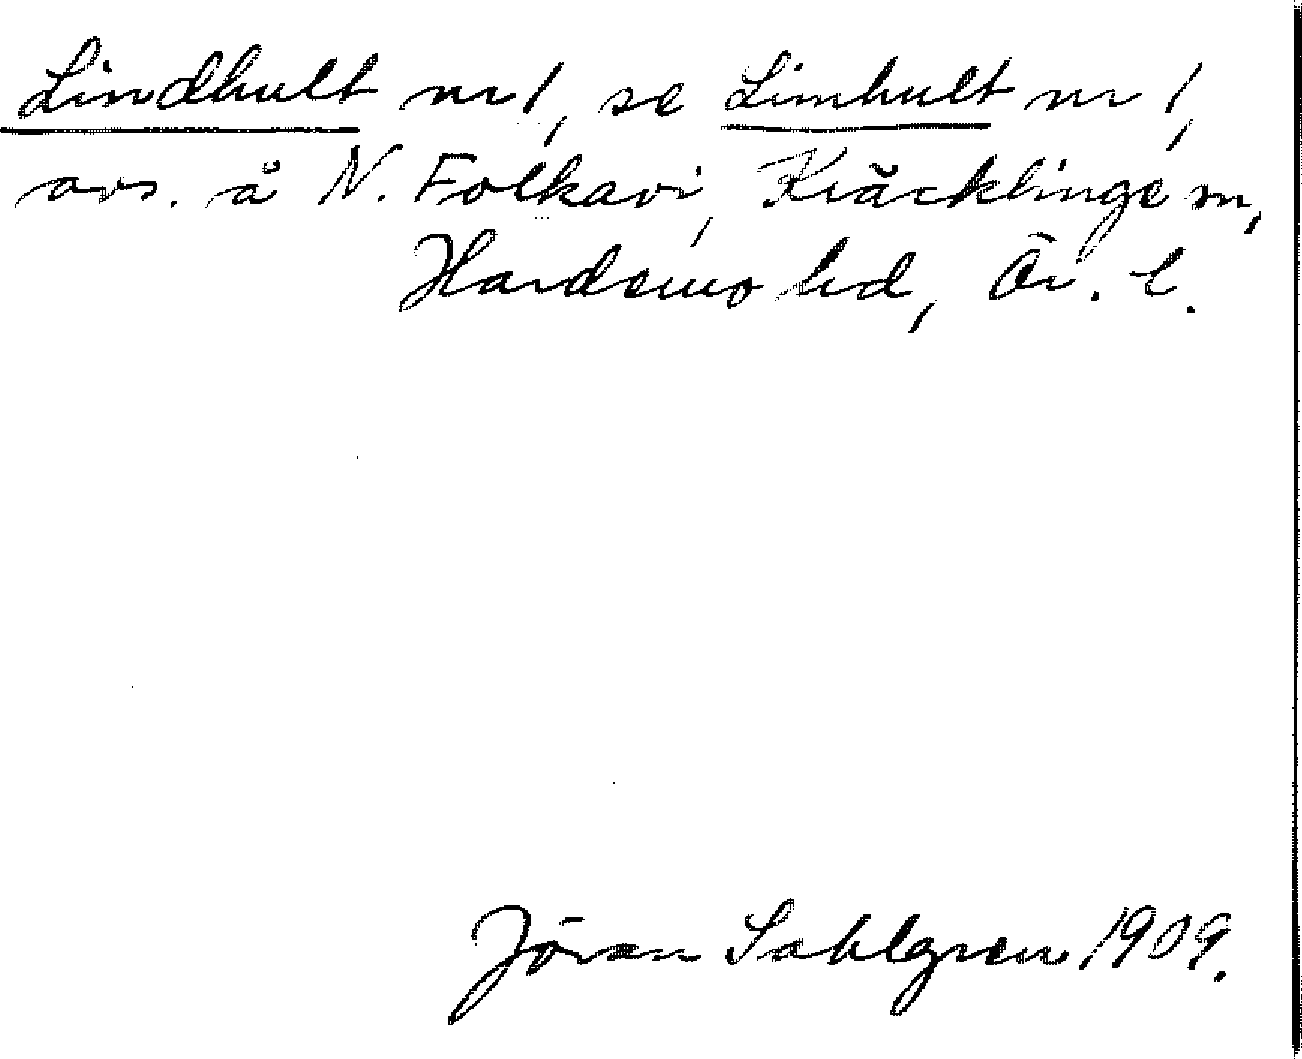 Lindhult nr 1, se Limhult nr 1,
avs. å N. Folkavi, Kräcklinge sn,
Hardemo hd, Ör. l.
Jöran Sahlgren 1909.